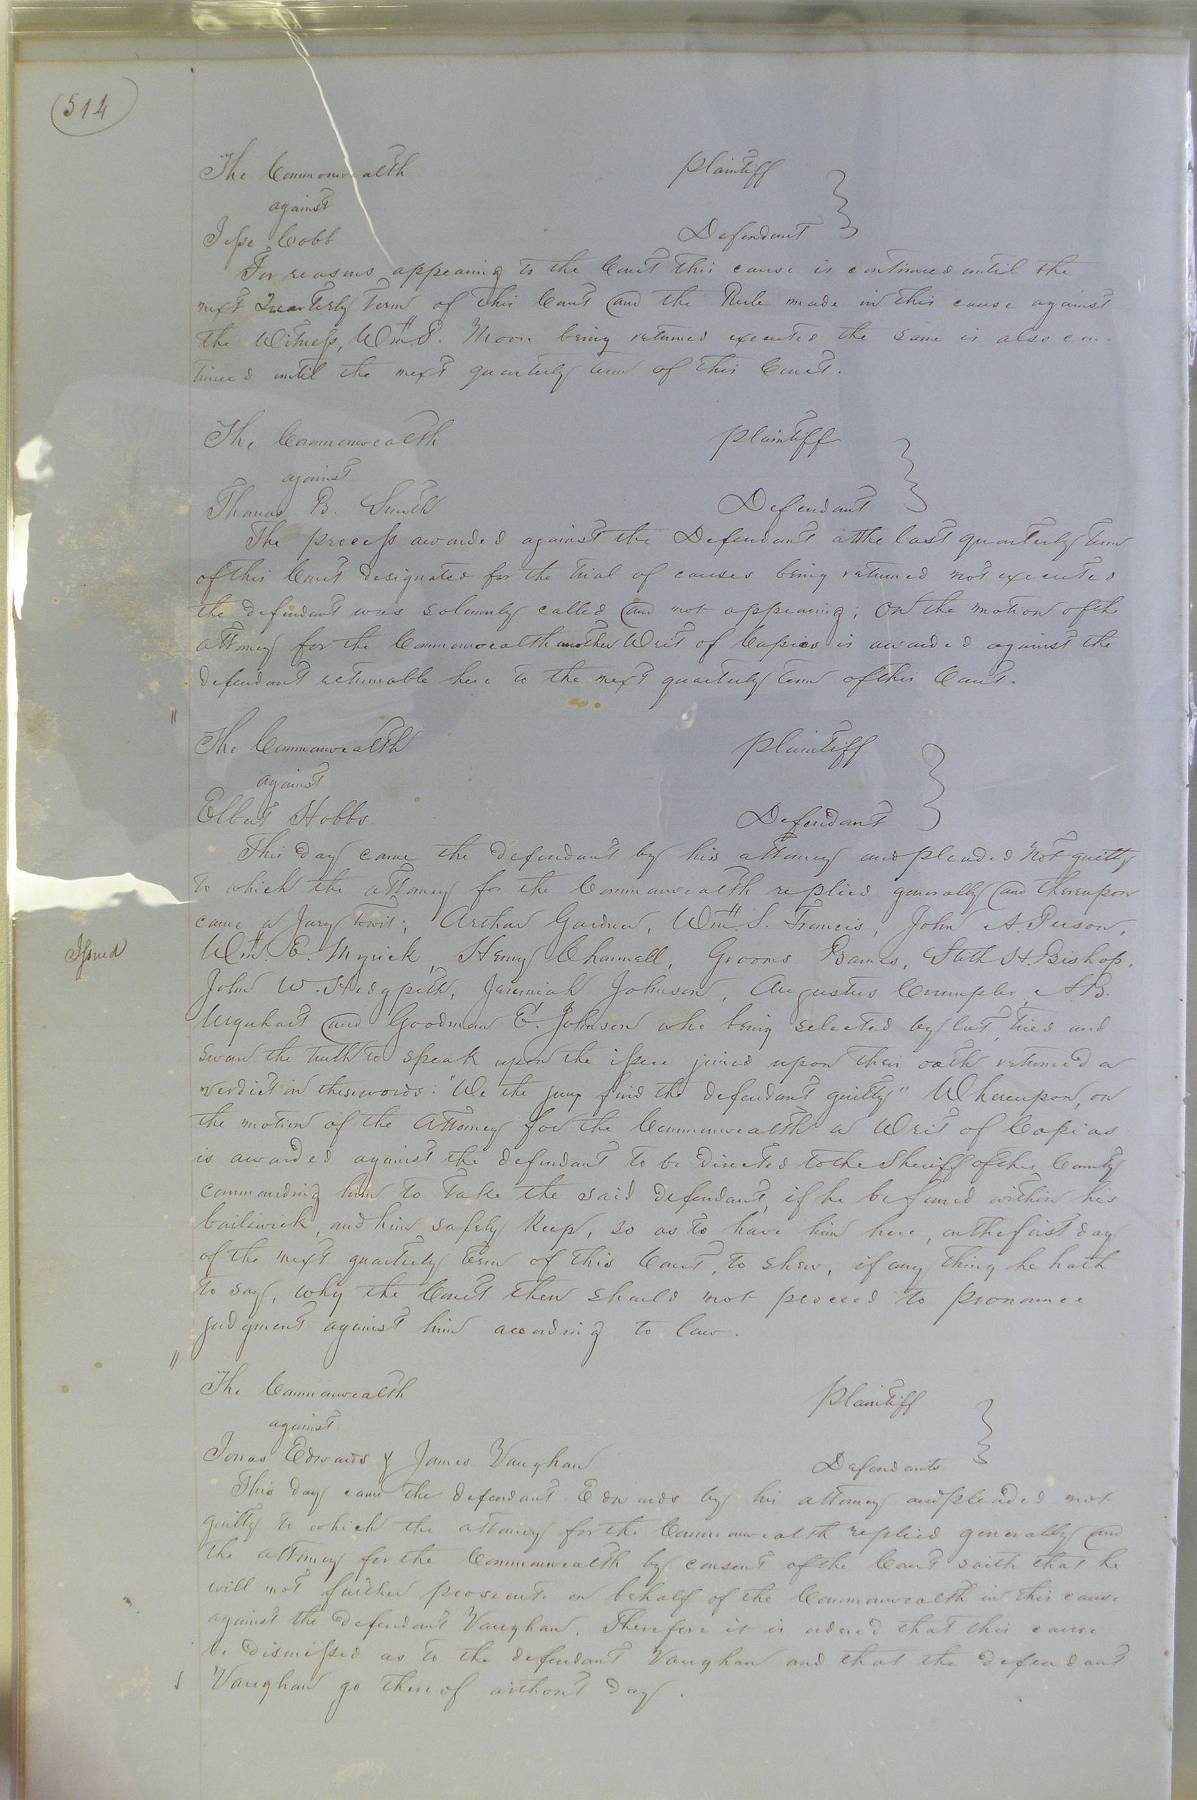 514
The Commonwealth Plaintiff
against
Jesse Cobb Defendant
For reasons appearing to the Court this cause is continued until the
next Quarterly term of this Court and the Rule made in this cause against
the Witness, Wm S. Moore being returned executed the same is also con-
tinued until the next quarterly term of this Court.
The Commonwealth Plaintiff
against
Thomas B. Smith Defendant
The process awarded against the Defendant at the last quarterly term
of this Court designated for the trial of causes being returned not executed
the defendant was solemnly called and not appearing; On the motion of the
attorney for the Commonwealth another Writ of Capias is awarded against the
defendant returnable here to the next quarterly term of this Court.
"
The Commonwealth Plaintiff
against
Elbert Hobbs Defendant
This day came the defendant by his attorney and pleaded Not guilty
to which the attorney for the Commonwealth replied generally and thereupon
came a Jury towit; Arthur Gardner, Wm S. Francis, John A Person,
Issued
Wm E. Myrick, Henry Channell, Grooms Barnes, Stith H. Bishop,
John W. Hedgpeth, Jeremiah Johnson, Augustus Crumpler, A. B.
Urquhart and Goodman E. Johnson who being selected by lot, tried and
sworn the truth to speak upon the issue joined upon their oath returned a
verdict in these words: "We the jury find the defendant guilty" Whereupon, on
the motion of the Attorney for the Commonwealth a Writ of Capias
is awarded against the defendant to be directed to the Sheriff of this County
commanding him to take the said defendant, if he be found within his
bailiwick, and him safely keep, so as to have him here, on the first day
of the next quarterly term of this Court, to shew, if any thing he hath
to say, why the Court then should not proceed to pronounce
judgment against him according to law.
"
The Commonwealth Plaintiff
against
Jonas Edwards & James Vaughan Defendants
This day came the defendant Edwards by his attorney and pleaded not
guilty to which the attorney for the Commonwealth replied generally and
the attorney for the Commonwealth by consent of the Court saith that he
will not further prosecute on behalf of the Commonwealth in this cause
against the defendant Vaughan. Therefore it is ordered that this cause
be dismissed as to the defendant Vaughan and that the defendant
Vaughan go thereof without day.